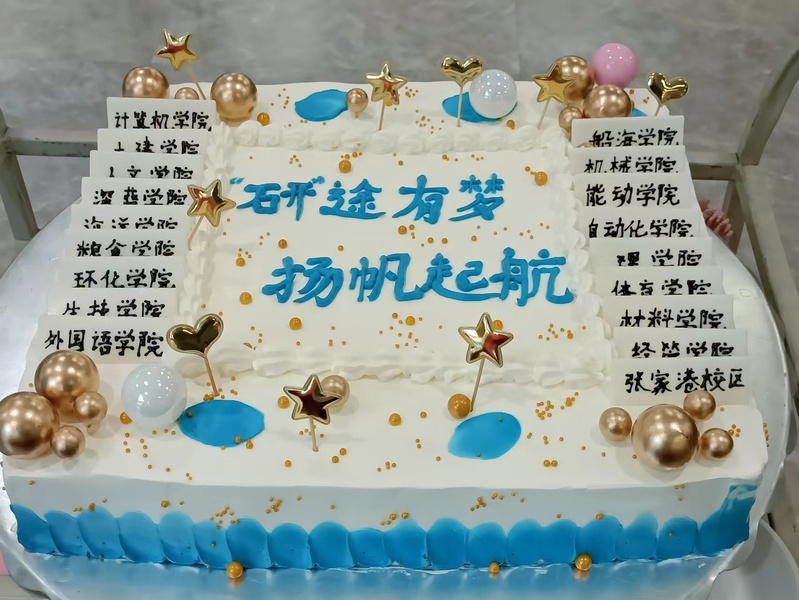 "石开"途有梦
扬帆起航
计算机学院
土建学院
人文学院
深蓝学院
海运学院
粮食学院
环化学院
生技学院
外国语学院
船海学院
机械学院
能动学院
自动化学院
理学院
体育学院
材料学院
经管学院
张家港校区